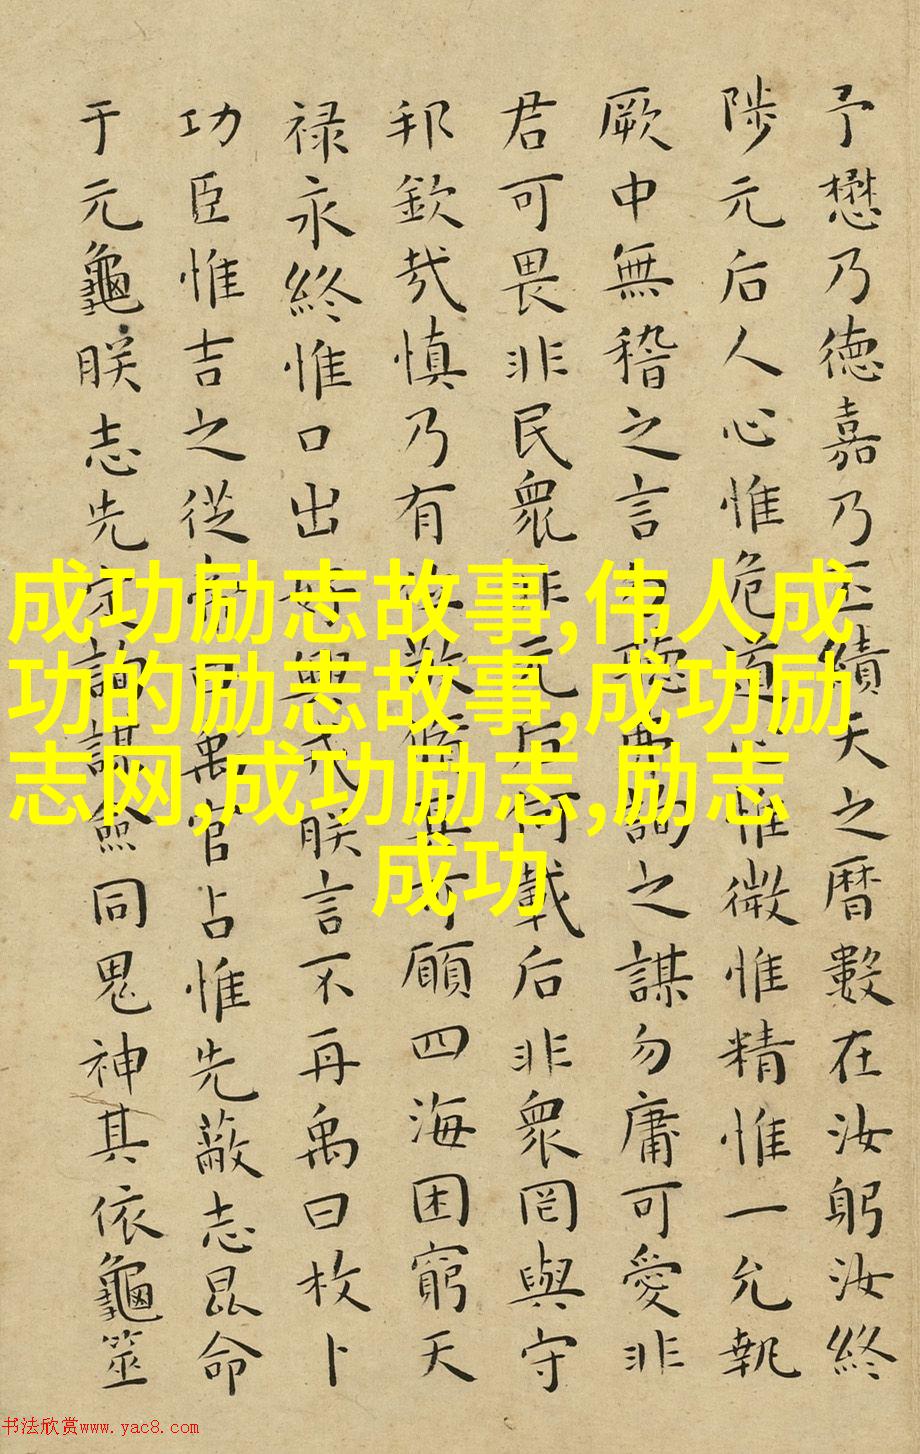 予懋乃德嘉乃丕績天之暦數在汝躬汝終
陟元后人心惟危道心惟微惟精惟一允執
厥中無稽之言勿聽弗詢之謀勿庸可愛非
君可畏非民衆非元后何載后非衆罔與守
邦欽哉慎乃有位敬脩其可願四海困窮天
禄永終惟口出好興戎朕言不再禹曰枚卜
功臣惟吉之從帝曰禹官占惟先蔽志昆命
于元龜朕志先定詢謀僉同鬼神其依龜筮
成功励志故事,伟人成
功的励志故事,成功励
志网,成功励志,励志
成功
书法欣赏www.yac8.com